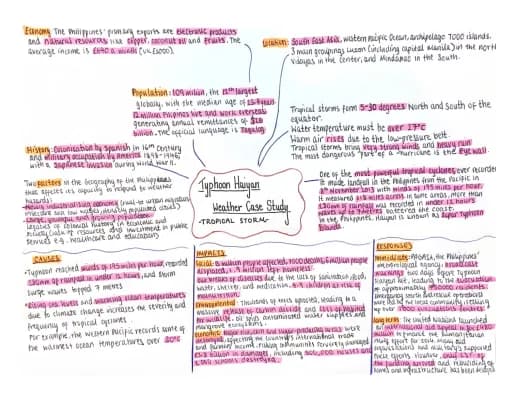 Economy: The Philippines' primary exports are electronic products
and natural resources like copper, coconut oil and fruits. The
average income is £640 a month (UK £3000)
Location: South East Asia, western Pacific Ocean, archipelago 7000 islands.
3 main groupings Luzon (including capital Manila) in the north
Visayas in the center, and Mindanao in the South.
Population: 109 million, the 12th largest
globally, with the median age of
12 million Filipinos live and work overseas
generating annual remittances of
billion. The official language is Tagalog.
History: Colonisation by Spain in 16th century
and military occupation by America 1898-1946,
with a Japanese invasion during world war II.
Tropical storms form 5-30 degrees North and South of the
equator.
Water temperature must be over 27°C
Warm air rises due to the low-pressure belt.
Tropical storms bring very strong winds and heavy rain
The most dangerous part of a hurricane is the eye wall
Two factors in the geography of the Philippines
that affects its capacity to respond to weather
hazards:
Newly industrialising economy
Large, younger, and growing population
Legacies of colonial history in economic and
resources and investment in public
services e.g. healthcare and education
Typhoon Haiyan
Weather Case Study
-TROPICAL STORM-
One of the most powerful tropical cyclones ever recorded
It made landfall in the Philippines from the Pacific in
8th November 2013 with winds of 195 miles per hour
It measured miles across in some areas, more than
of rainfall was recorded in under 12 hours
battered the coast
in the Philippines, Haiyan is known as Super Typhoon
CAUSES
Typhoon reached winds of 195 miles per hour, recorded
of rainfall in under 12 hours, and storm
surge waves topped 7 metres
Rising sea levels and warming ocean temperatures
due to climate change increases the severity and
frequency of tropical cyclones
For example, the western Pacific records some of
the warmest ocean temperatures, over
IMPACTS
Social: million people affected, 7000 deaths, million people
displaced, 1.9 million left homeless.
Outbreaks of diseases due to the lack of sanitation, food,
water, shelter, and medication. children at risk of
malnutrition.
Environmental: Thousands of trees uprooted, leading to a
massive release of carbon dioxide and loss of habitat
for wildlife. Oil spills contaminated water supplies and
mangrove ecosystems.
Economic: Major rice, corn and sugar-producing areas were
destroyed, affecting the country's international trade
and farmers' income, risking communities to poverty. Damaged
in damages, including houses and
schools destroyed.
RESPONSES
Immediate: PAGASA, the Philippines'
meteorological agency, broadcast
warnings two days before typhoon
Haiyan hit, leading to the evacuation
of approximately residents.
emergency
led by the local community, setting
up over evacuation centres
Long term: The United Nations launched
an international aid appeal in for
million to finance the humanitarian
relief effort for 2014. Many aid
organisations and military supported
these efforts. However, only
of the funding arrived and rebuilding of
homes and infrastructure has been delayed